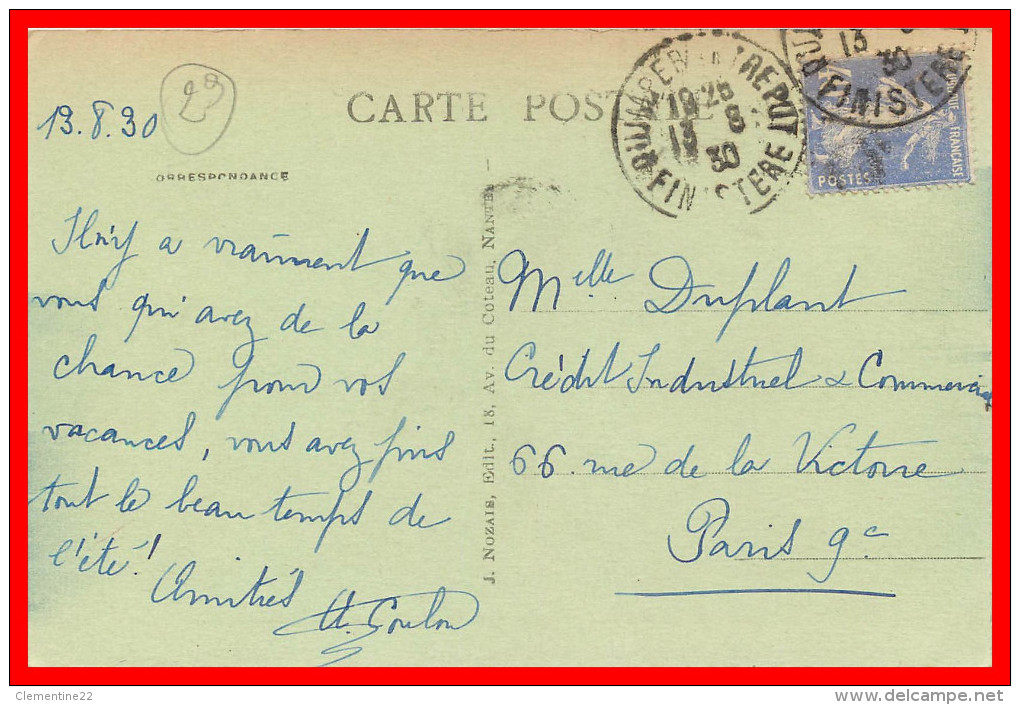 CARTE POSTALE
23
13.8.30
CORRESPONDANCE
Il n'y a vraiment que
vous qui avez de la
chance pour vos
vacances, vous avez pris
tout le beau temps de
l'été!
Amitiés
H. Coulon
J. NOZAIS, Edit., 18, Av. du Coteau, NANTES
QUIMPER ENTREPOT
19 25
13 8
30
FINISTERE
13
30
FINISTERE
POSTES
FRANÇAISE
Melle Duplant
Crédit Industriel & Commercial
66. rue de la Victoire
Paris 9e
Clementine22
www.delcampe.net